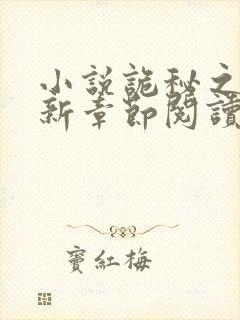 小說詭秘之
新章節閱讀
竇紅梅